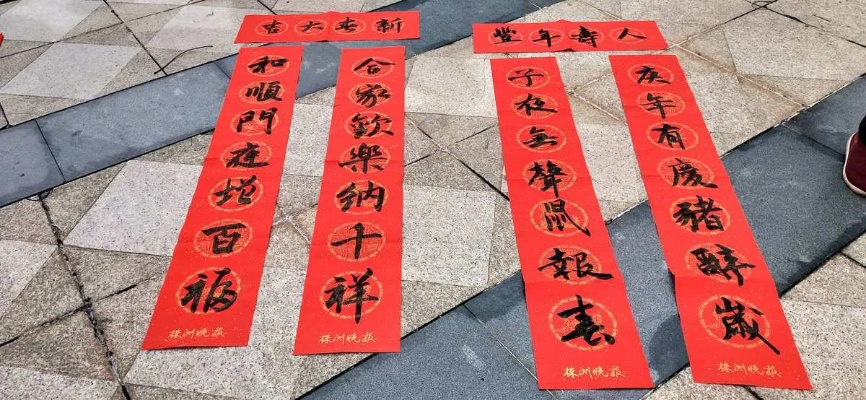 新春大吉
合家歡樂納千祥
株洲晚报
和順門庭增百福
株洲晚报
人壽年豐
庚年有慶豬辭歲
株洲晚报
子夜无聲鼠報春
株洲晚报